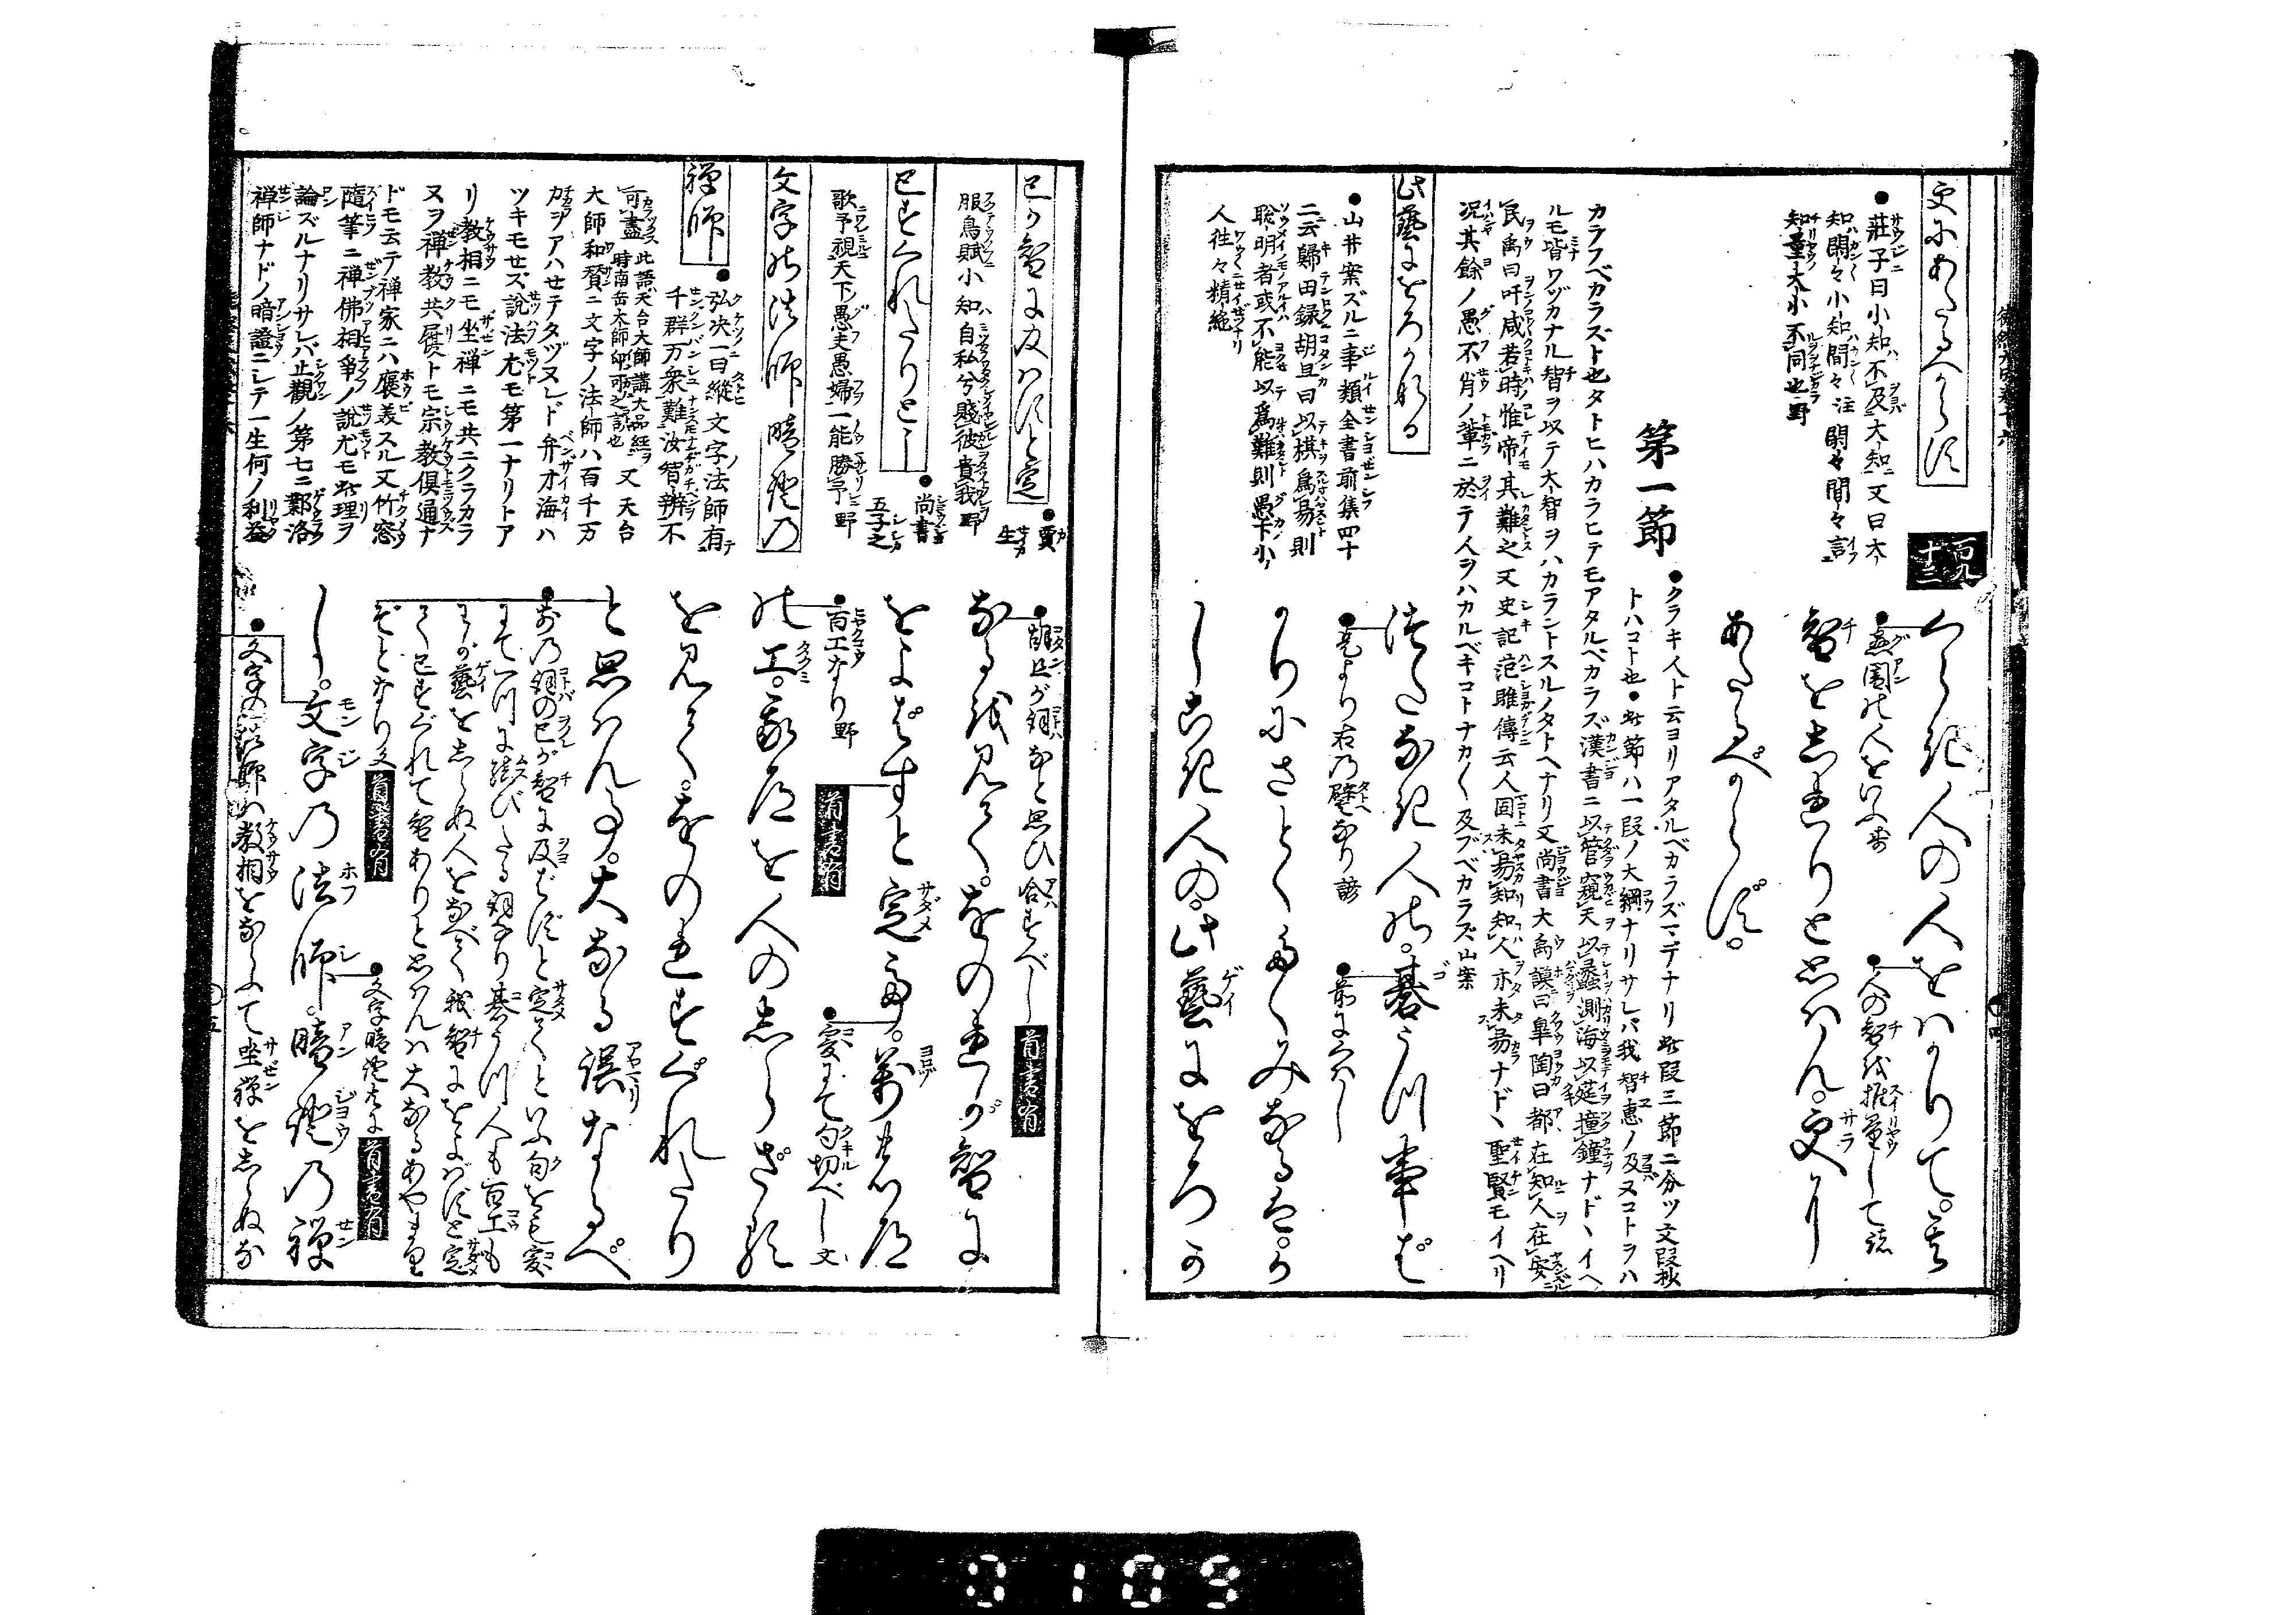 更にあたるべからず
●莊子曰小知不及大知又曰大
知閑々小知間々注閑々間々言
知量大小不同也野
百九
十三
くらき人の人をはかりて。其
●愚闇の人をいふ
●人の智を推量して
智をしれりと思はん。更に
あたるべからず。
第一節
●クラキ人ト云ヨリアタルベカラズマデナリ此段三節ニ分ツ文段抄
カラフベカラズト也タトヒハカラヒテモアタルベカラズ漢書ニ以管窺天以蠡測海以莛撞鐘ナドヽイヘ
ルモ皆ワヅカナル智ヲ以テ大智ヲハカラントスルノタトヘナリ又尚書大禹謨曰皐陶曰都在知人在安
民禹曰吁咸若時惟帝其難之又史記范雎傳云人固未易知知人亦未易ナドヽ聖賢モイヘリ
况其餘ノ愚不肖ノ輩ニ於テ人ヲハカルベキコトナカ〱及ブベカラズ山案
トハコト也●此節ハ一段ノ大綱ナリサレバ我智惠ノ及ヌコトヲハ
此藝にをろかなる
●山井案ズルニ事類全書前集四十
二云歸田録胡旦曰以棋爲易則
聡明者或不能以爲難則愚下小
人徃々精絶
つたなき人の。碁うつ事ば
●是より右の譬なり諺
かりにさとくたくみなるは。か
しこき人の。此藝にをろか
己が智に及ばずと定
●賈生
服鳥賦小知自私兮賤彼貴我野
己すぐれたりと
●尚書
五子之
歌予視天下愚夫愚婦一能勝予野
文字の法師暗證の
禅師
●弘决一曰縱文字法師有
千群万衆難汝智辨不
可盡此語天台大師講大品經時南岳大師印可之語也又天台
大師和賛ニ文字ノ法師ハ百千万
カヲアハセテタヅヌレド弁才海ハ
ツキモセズ説法尤モ第一ナリトア
リ教相ニモ坐禅ニモ共ニクラカラ
ヌヲ禅教共展トモ宗教倶通ナ
ドモ云テ禅家ニハ褒義スル又竹窓
隨筆ニ禅佛相爭ノ説尤モ此理ヲ
論ズルナリサレバ止觀ノ第七ニ鄴洛
禅師ナドノ暗證ニシテ一生何ノ利益
●胡旦が詞など思ひ合すべし 首書有
なるを見て。をのれが智に
をよばずと定め。萬の道
●百工なり野 首書有
●爰にて句切べし文
の工。我道を人のしらざる
を見て。をのれすぐれたり
と思はん事。大なる誤なるべ
●前の詞の己が智に及ばずと定てといふ句をも爰
にて一つに結びたる詞なり碁うつ人も百工も
わが藝をしらぬ人をなべて我智にをよばずと定
て己すぐれて智ありと思はんは大なるあやまり
ぞとなり文 首書有
し。文字の法師。暗證の禅
●文字暗證 首書有
●文字の法師は教相をならふて坐禅をしらぬな